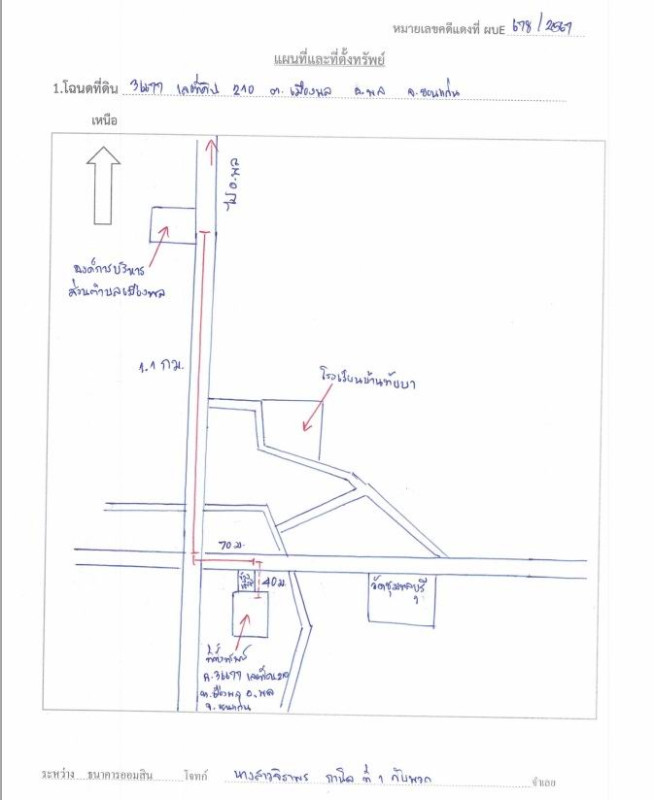 หมายเลขคดีแดงที่ ผบE 678/2567
แผนที่และที่ตั้งทรัพย์
1.โฉนดที่ดิน 36677 เลขที่ดิน 210 ต.เมืองพล อ.พล จ.ขอนแก่น
เหนือ
ไป อ.พล
องค์การบริหาร
ส่วนตำบลเมืองพล
1.1 กม.
โรงเรียนบ้าน
70 ม.
40 ม.
ที่ตั้งทรัพย์
ฉ.36677 เลขที่ดิน 210
ต.เมืองพล อ.พล
จ.ขอนแก่น
ระหว่าง ธนาคารออมสิน โจทก์ นางสาวจิราพร ที่ 1 กับพวก จำเลย